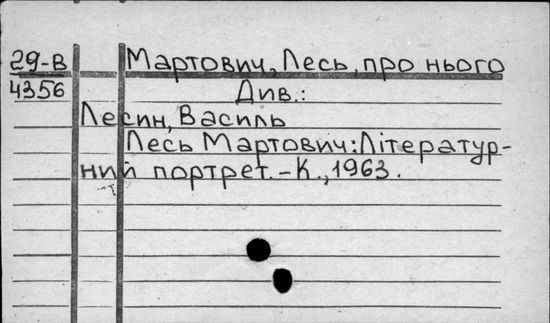 29-В Мартович, Лесь, про нього
4356 Див.:
Лесин, Василь
Лесь Мартович: Літератур-
ний портрет. - К., 1963.